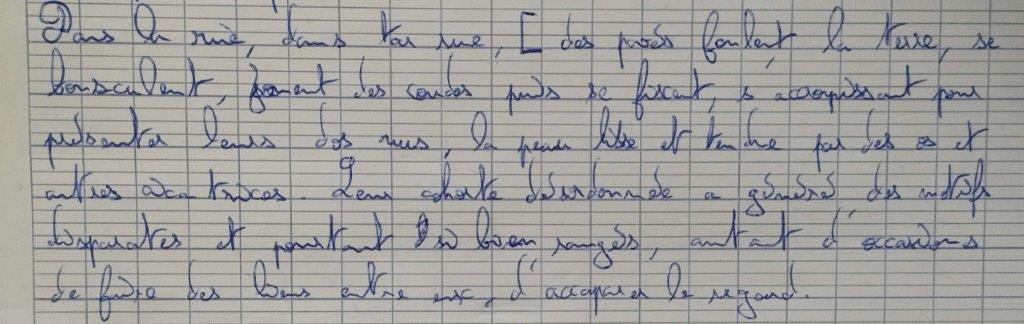 Dans la rue, dans ta rue, [ des pavés foulent la terre, se
bousculent, forment des coudes puis se fixent, s'accroupissant pour
présenter leurs dos nus, la peau lisse et tendue par des os et
autres cicatrices. Leur cohorte désordonnée a généré des motifs
disparates et pourtant si bien rangés, autant d'occasions
de faire des liens entre eux, d'accaparer le regard.